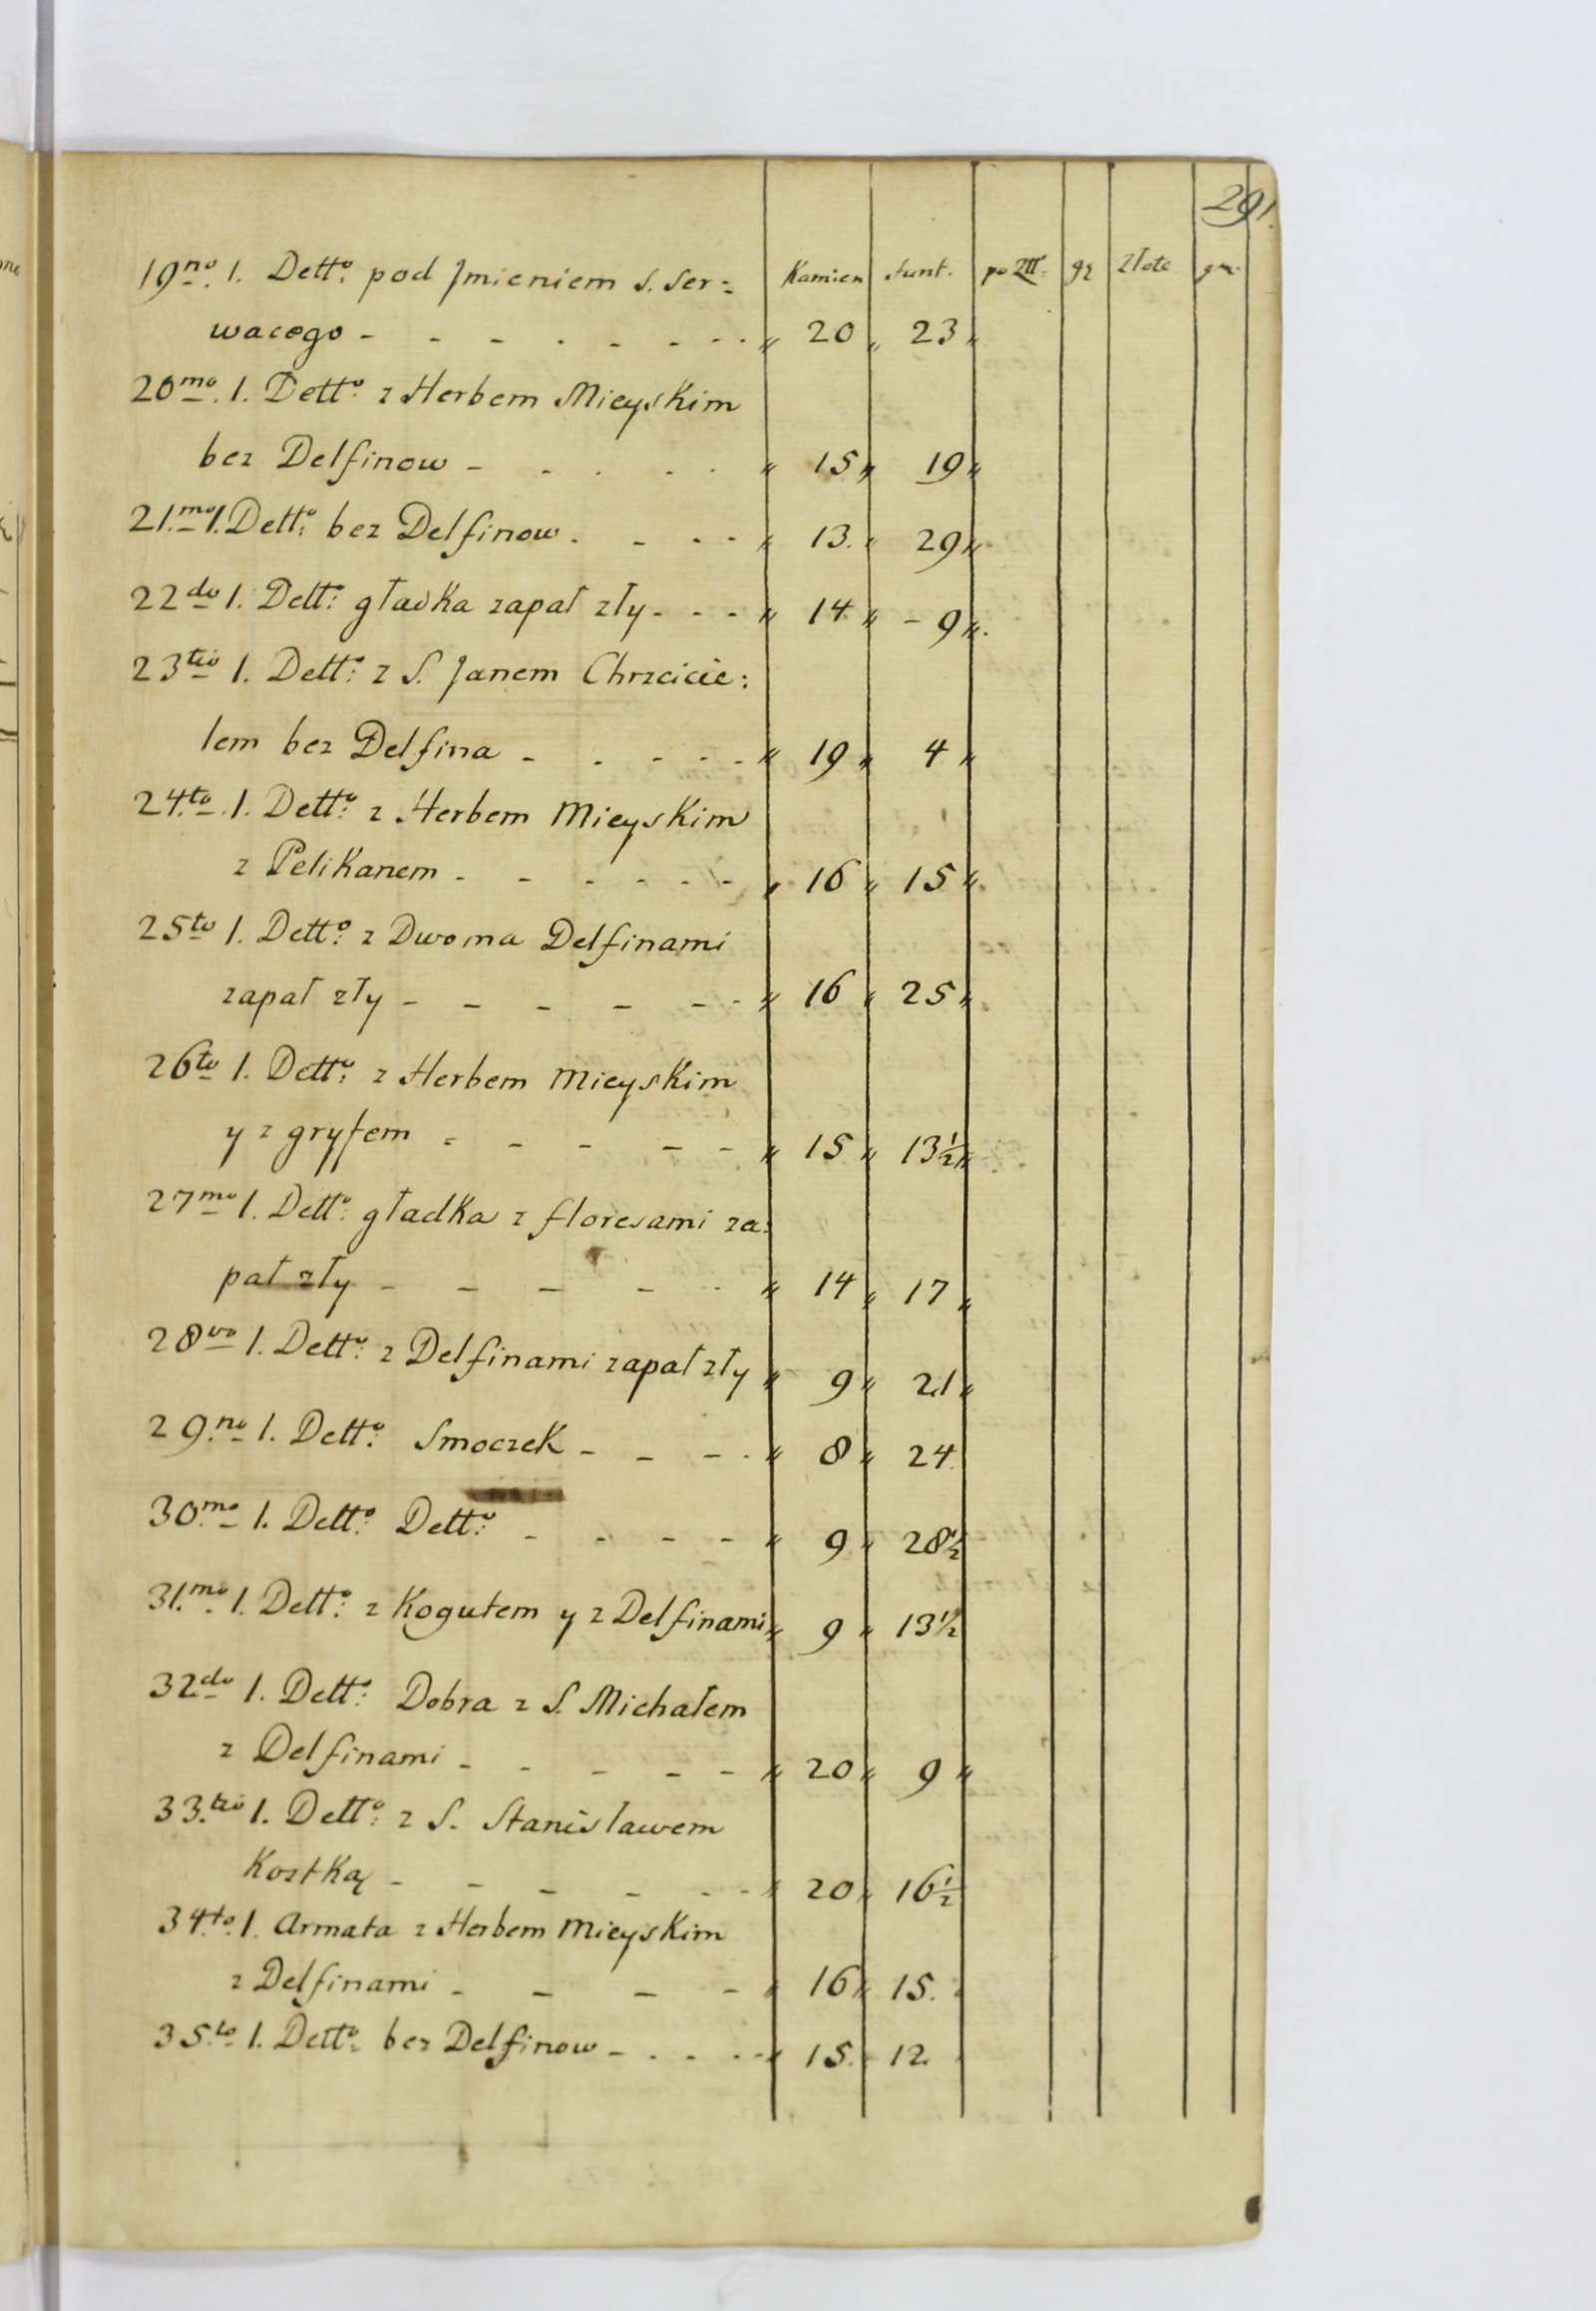 291.
Kamien funt. po Zlt: gr Złote gr:
19no. 1. Detto: pod Jmieniem S. Ser:
wacego - - - - - - - - „ 20 „ 23 „
20mo. 1. Detto: z Herbem Mieyskim
bez Delfinow - - - - - „ 15 „ 19 „
21.mo 1. Detto: bez Delfinow. - - - „ 13. „ 29 „
22do 1. Detto: gładka zapał zły - - - „ 14 „ - 9 „.
23tio 1. Detto: z S. Janem Chrzcicie:
lem bez Delfina - - - - - „ 19 „ 4 „
24.to. 1. Detto: z Herbem Mieyskim
z Pelikanem - - - - - - „ 16 „ 15 „
25to 1. Detto: z Dwoma Delfinami
zapał zły - - - - - - „ 16 „ 25 „
26to 1. Detto: z Herbem Mieyskim
y z gryfem - - - - - „ 15 „ 13½ „
27mo 1. Detto: gładka z floresami za:
pał zły - - - - - „ 14 „ 17 „
28vo 1. Detto: z Delfinami zapał zły „ 9 „ 21 „
29.no 1. Detto: Smoczek - - - - „ 8 „ 24.
30mo 1. Detto: Detto: - - - - „ 9 „ 28½
31.mo. 1. Detto: z Kogutem y z Delfinami „ 9 „ 13½
32do 1. Detto: Dobra z S. Michałem
z Delfinami - - - - - „ 20 „ 9 „
33.tio 1. Detto: z S. Stanisławem
Kostką - - - - - - „ 20 „ 16½
34.to. 1. Armata z Herbem Mieyskim
z Delfinami - - - - „ 16 „ 15.
35.to 1. Detto: bez Delfinow - - - - - 15. - 12